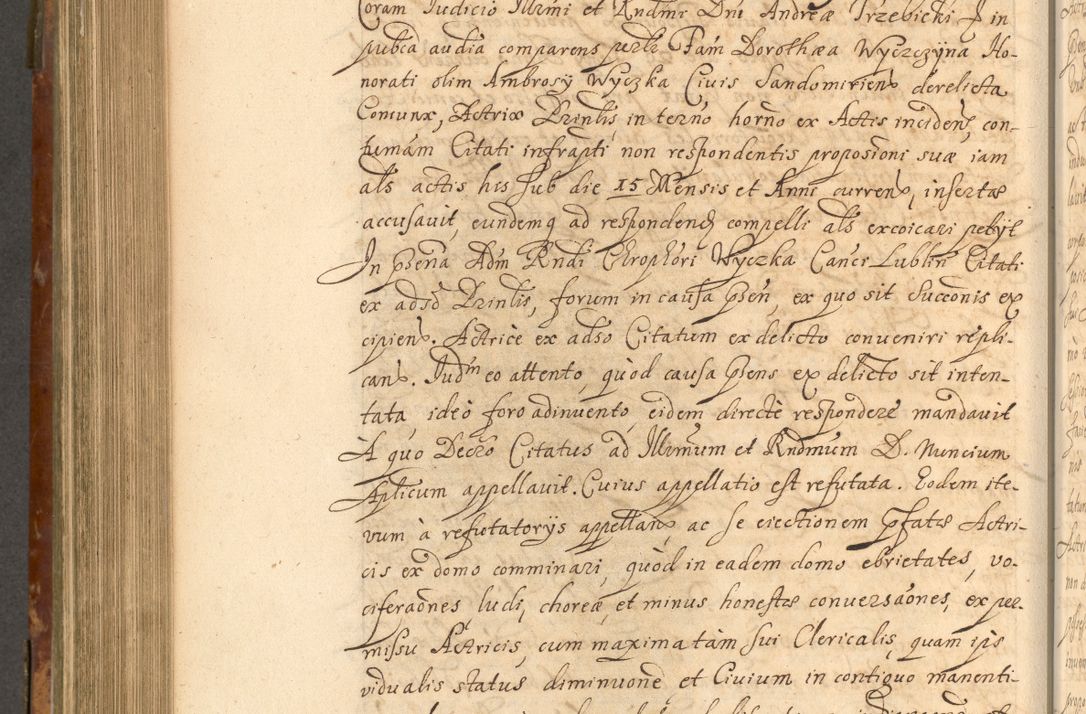 Coram Iudicio Illrmi et Rndmi Dni Andreæ Trzebicki J in
pubca audia comparens persler Fam Dorothæa Wyczczyna Ho-
norati olim Ambrosÿ Wyczka Civis Sandomiriens derelicta
Coniunx, Actrix Prinlis, in terno horno ex Actis inciden, con-
tumam Citati infrapti non respondentis proposioni suæ iam
als actis his sub die 15 Mensis et Anni curren, insertæ
accusavit, eundemq ad respondend compelli als excoicari petÿt
In psena Adm Rndi Chrophori Wyczka Canci Lublin Citati
ex adsd Prinlis, forum in causa psen, ex quo sit Succonis ex
cipien. Actrice ex adso Citatum ex delicto conveniri repli-
can. Iudm eo attento, quòd causa psens ex delicto sit inten-
tata, ideò foro adinvento, eidem directè respondere mandavit
A quo Decro Citatus ad Illrmum et Rndmum D. Nuncium
Aplicum appellavit. Cuius appellatio est refutata. Eodem ite-
rum à refutatorÿs appellan, ac se eiectionem pfatæ Actri-
cis ex domo comminari, quòd in eadem domo ebrietates, vo-
ciferaones ludi, choreæ et minus honestæ conversaones, ex per-
missu Actricis, cum maxima tàm sui Clericalis, quam ips
vidualis status diminuone et Civium in contiguo manenti-